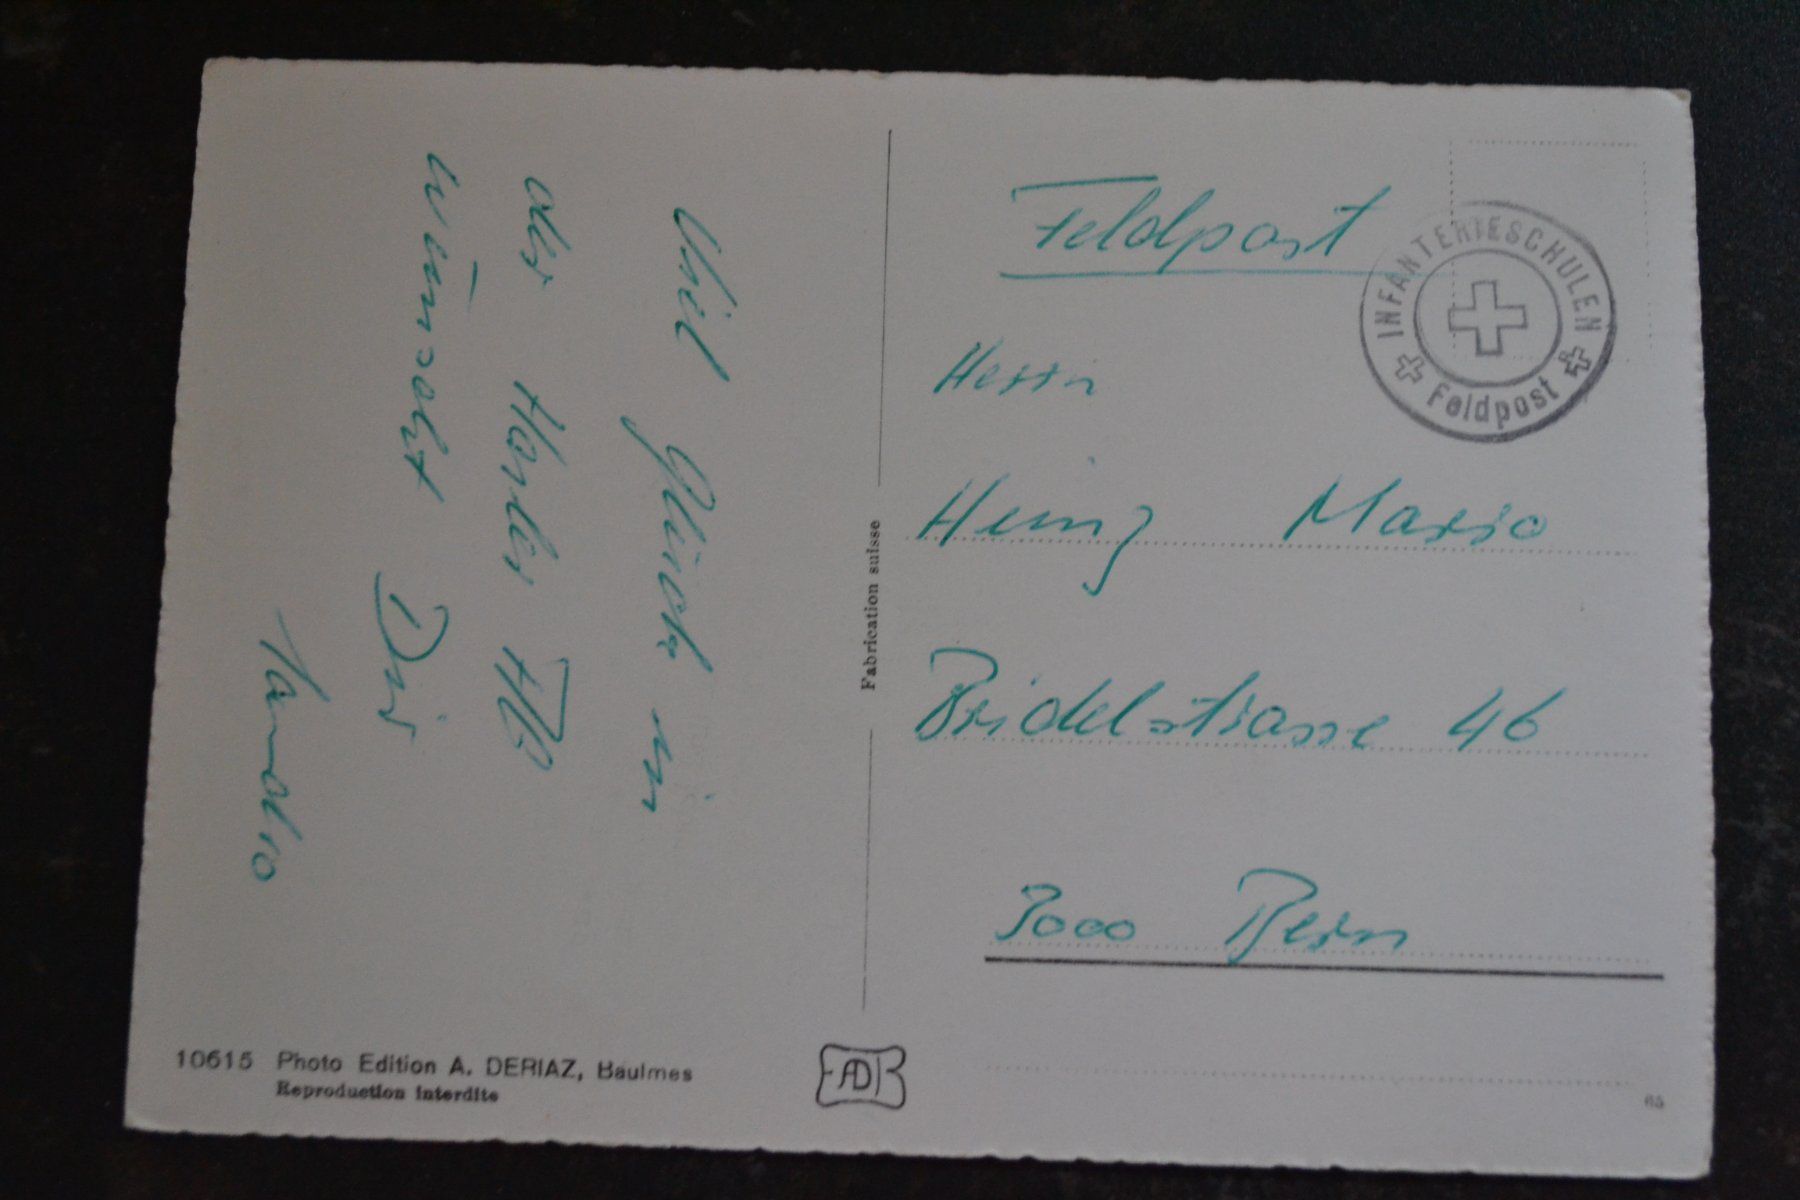 Viel Glück in
der Handels
wünscht Dir
Sandro
Fabrication suisse
Feldpost
INFANTERIESCHULEN
Feldpost
Herrn
Heinz Mario
Bridelstrasse 46
3000 Bern
10615 Photo Edition A. DERIAZ, Baulmes
Reproduction interdite
65